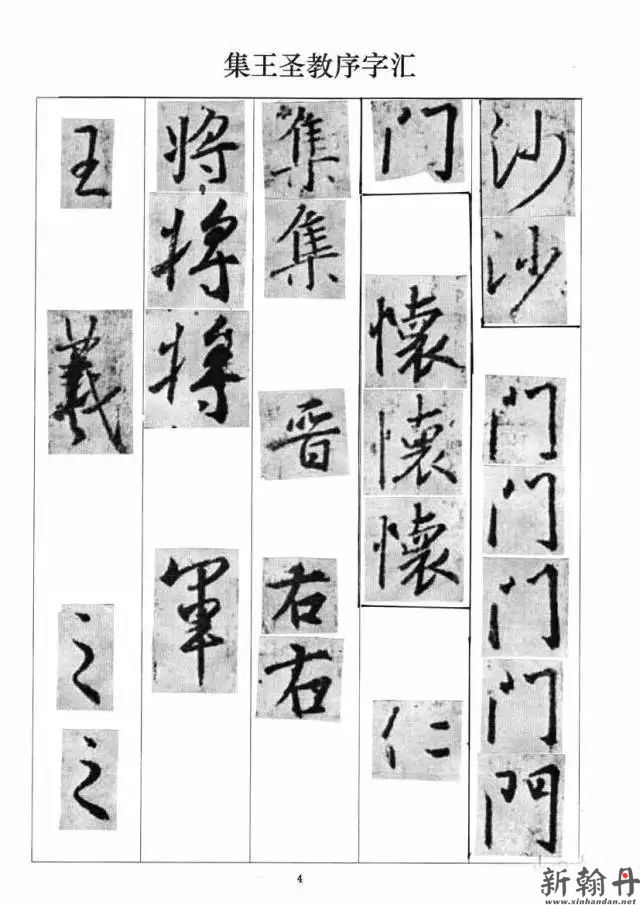 集王圣教序字汇
沙沙門門門門門
門懷懷懷仁
集集晋右右
将将将軍
王羲之之
4
新翰丹
www.xinhandan.net